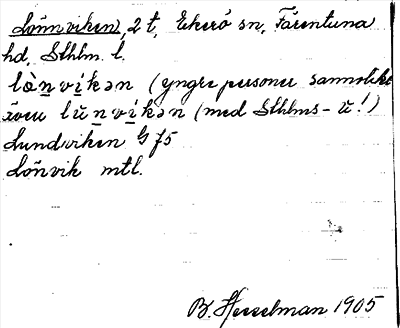 Lönnviken, 2 t, Ekerö sn, Färentuna
hd, Sthlm. l.
lö̀n̲víkən (yngre personer sannolikt
även lŭn̲víkən (med Sthlms-ŭ!)
Lundviken G 75
Lönvik mtl.
B. Hesselman 1905